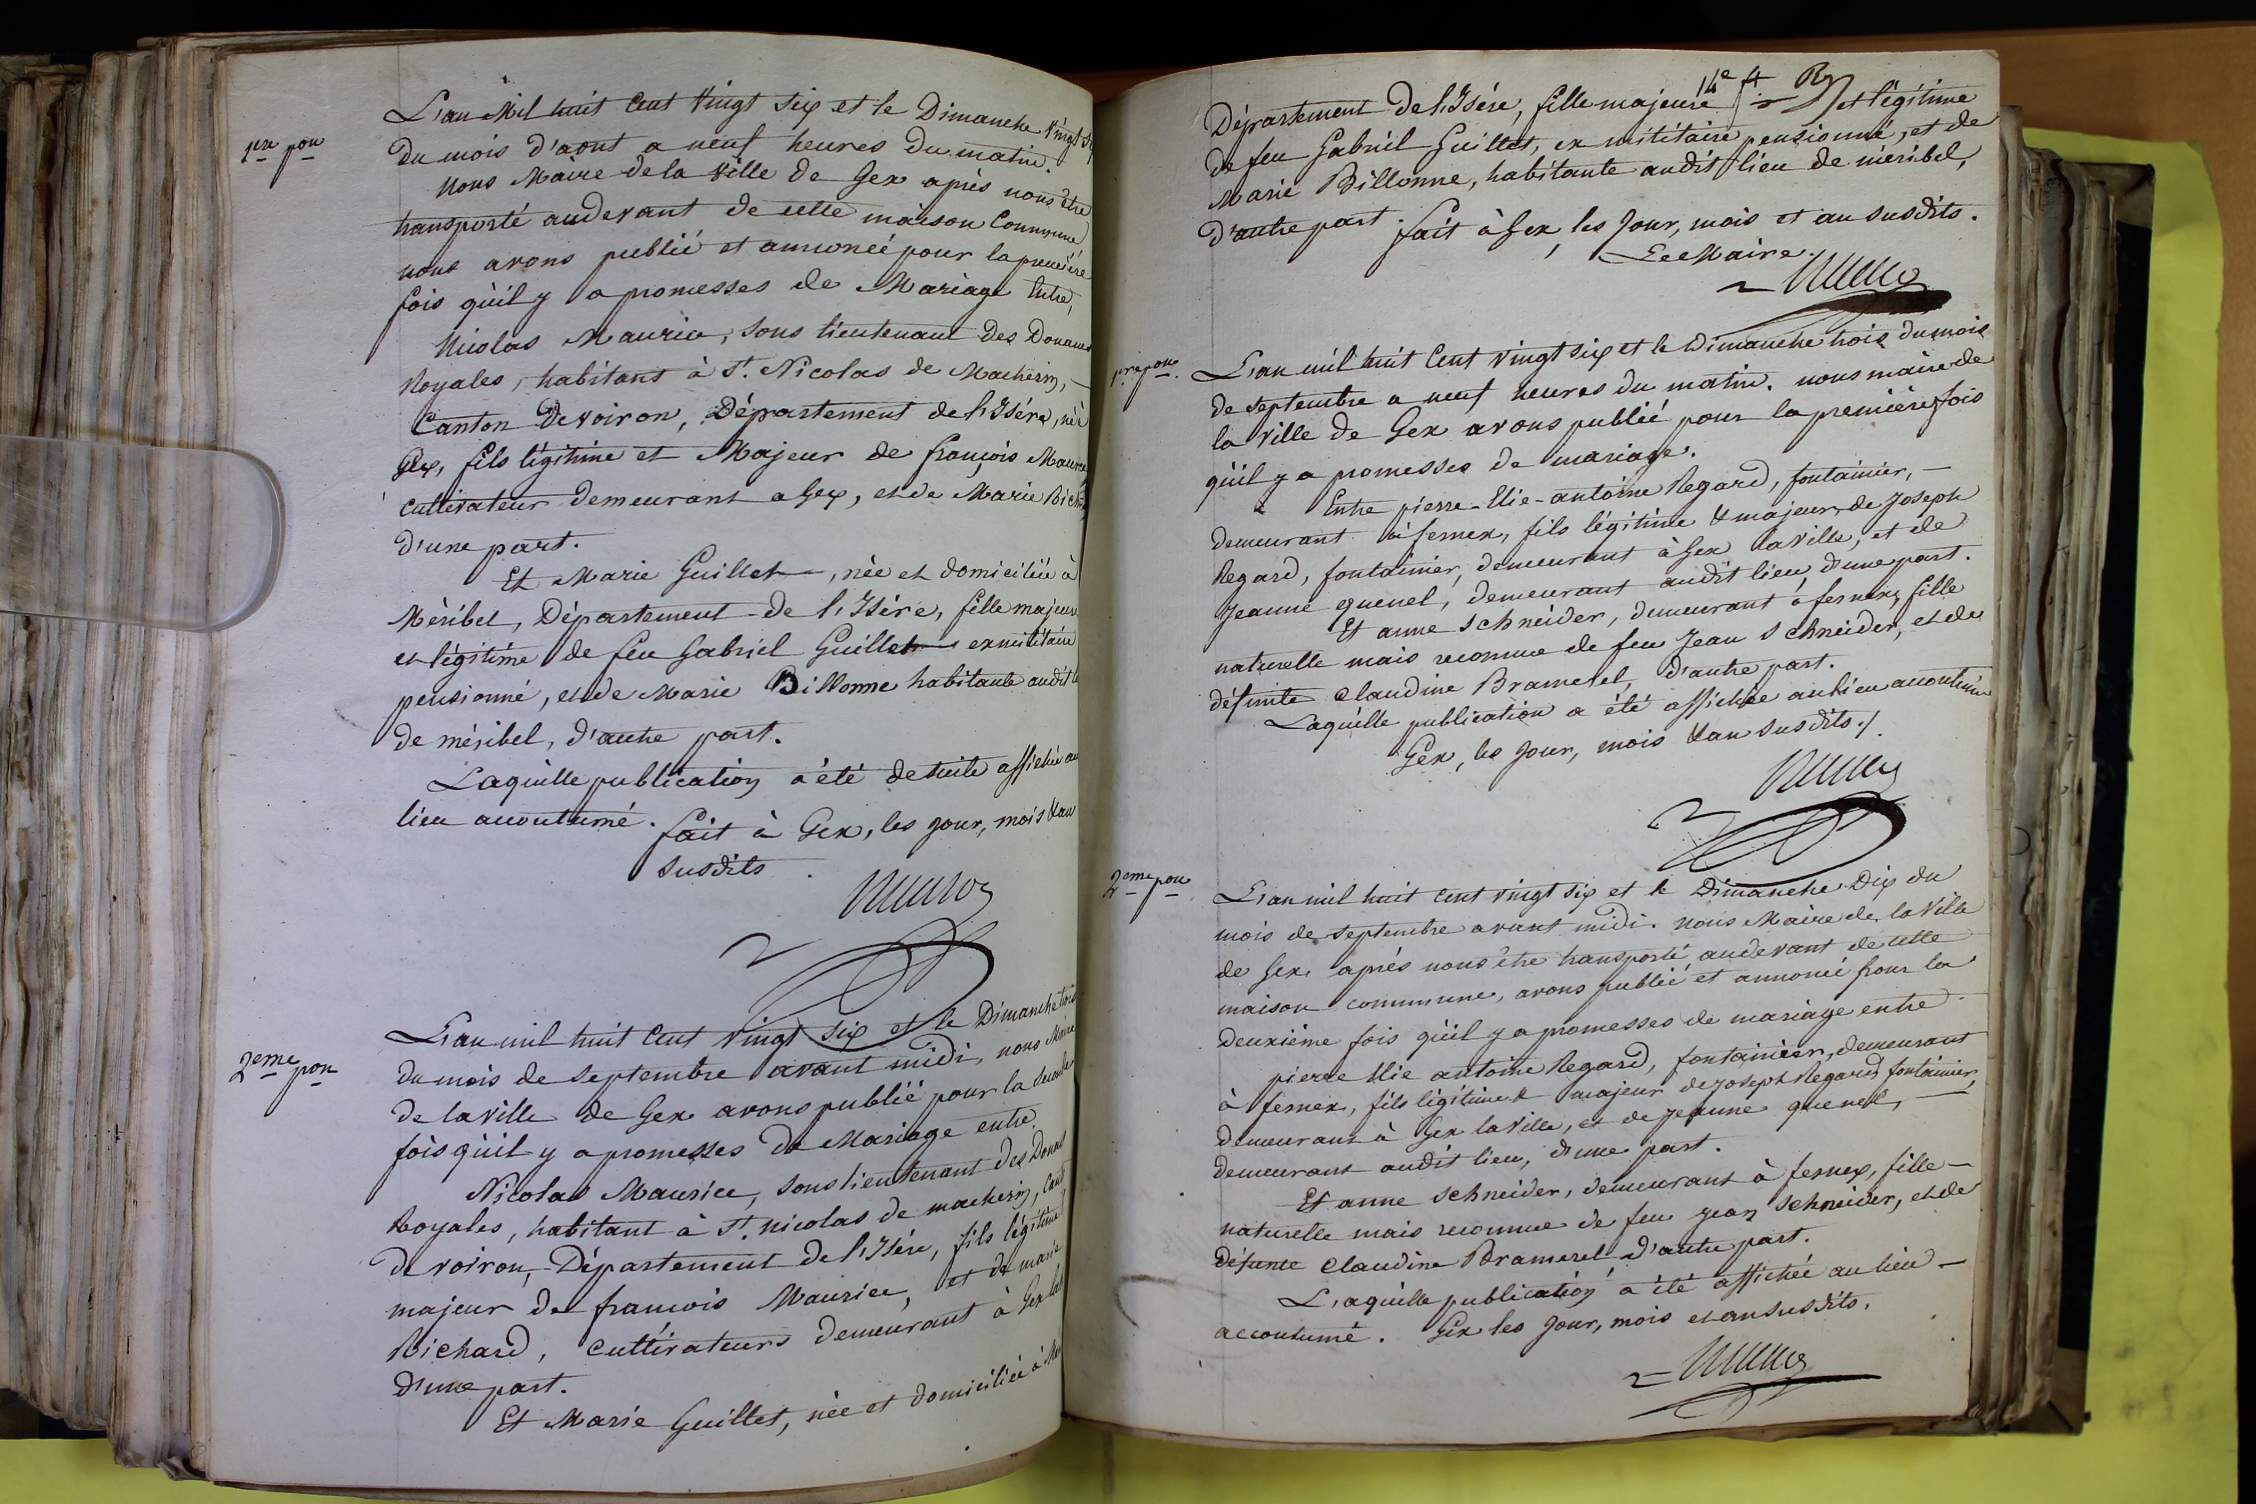 1ere pon
L'an Mil huit Cent Vingt Six et le Dimanche Vingt
du mois d'aout a neuf heures du matin.
Nous Maire de la Ville de Gex après nous être
transporté audevant de cette maison Commune
nous avons publié et annoncé pour la première
fois qu'il y a promesses de Mariage Entre,
Nicolas Maurice, sous lieutenant des Douanes
Royales, habitant à St. Nicolas de Macherin, —
Canton de Voiron, Département de l'Isére, né à
Gex, fils légitime et Majeur de françois Maurice
Cultivateur demeurant a Gex, et de Marie Richard
d'une part.
Et Marie Guillet, née et domiciliée à
Méribel, Département de l'Isére, fille majeure
et légitime de feu Gabriel Guillet exmilitaire
pensionné, et de Marie Billonne habitante audit
de méribel, d'autre part.
Laquelle publication a été de suite affichée au
lieu accoutumé. fait à Gex, les jour, mois & an
susdits.
2eme pon
L'an mil huit Cent Vingt Six et le Dimanche trois
du mois de septembre avant midi, nous Maire
de la Ville de Gex avons publié pour la seconde
fois qu'il y a promesses de Mariage entre.
Nicolas Maurice, sous lieutenant des Douanes
Royales, habitant à St. Nicolas de macherin, Cant
de voiron, Département de l'Isére, fils légitime
majeur de francois Maurice, et de marie
Richard, Cultivateurs demeurant à Gex
d'une part.
Et Marie Guillet, née et domiciliée à
14e ft
Département de l'Isére, fille majeure et légitime
de feu Gabriel Guillet, ex militaire pensionné, et de
Marie Billonne, habitante audit lieu de méribel,
d'autre part. fait à Gex, les Jour, mois et an susdits.
Le Maire.
1re pon.
L'an mil huit Cent vingt six et le Dimanche trois du mois
de septembre a neuf heures du matin. nous maire de
la Ville de Gex avons publié pour la première fois
qu'il y a promesses de mariage.
Entre pierre-Elie-antoine Regard, fontainier, —
demeurant à fernex, fils légitime & majeur de Joseph
Regard, fontainier, demeurant à Gex la Ville, et de
Jeanne quenel, demeurant audit lieu, d'une part.
Et anne schneider, demeurant à fernex, fille
naturelle mais reconnue de feu Jean schneider, et de
défunte Claudine Bramerel, d'autre part.
Laquelle publication a été affichée au lieu accoutumé
Gex, les jour, mois & an susdits./.
2eme pon
L'an mil huit cent vingt six et le Dimanche Dix du
mois de septembre avant midi. nous Maire de la Ville
de Gex, après nous être transporté audevant de cette
maison commune, avons publié et annoncé pour la
Deuxiéme fois qu'il y a promesses de mariage entre
pierre Elie antoine Regard, fontainier, demeurant
à fernex, fils légitime & majeur de Joseph Regard fontainier,
demeurant à Gex la Ville, et de Jeanne quenel, —
demeurant audit lieu, d'une part.
Et anne schneider, demeurant à fernex, fille —
naturelle mais reconnue de feu jean schneider, et de
défunte Claudine Bramerel d'autre part.
Laquelle publication a été affichée au lieu —
accoutumé. Gex les jour, mois et an susdits.